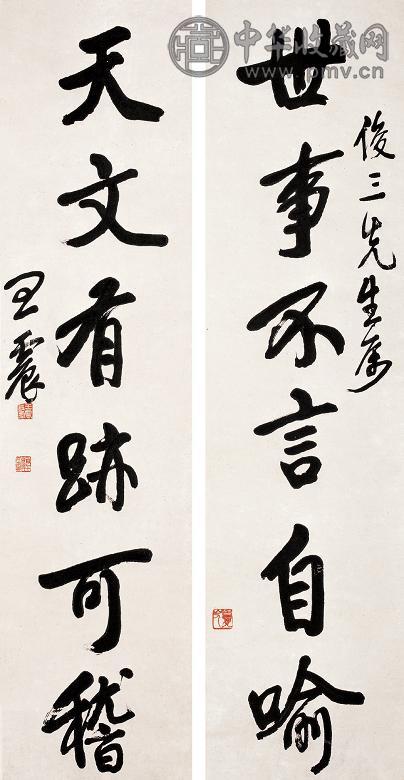 中华收藏网
www.pmv.cn
俊三先生属
世事不言自喻
天文有跡可稽
王震